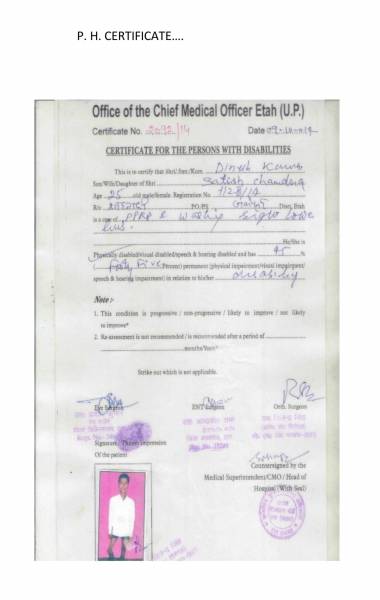 P. H. CERTIFICATE....
Office of the Chief Medical Officer Etah (U.P.)
Certificate No. 2032/14 Date
CERTIFICATE FOR THE PERSONS WITH DISABILITIES
This is to certify that shri/Smt/Kum Dinesh Kumar
Son/Wife/Daughter of Shri Satish Chandra
Age 25 old male/female Registration No.
R/o PO/PS Distt. Etah
is a case of PPRP & Wasting Right Lowe
limb. He/She is
Physically disabled/visual disabled/speech & hearing disabled and has 45 %
(Forty Five Percent) permanent (physical impairment/visual impairment/
speech & hearing impairment) in relation to his/her disability
Note :-
1. This condition is progressive / non-progressive / likely to improve / not likely
to improve*
2. Re-assessment is not recommended / is recommended after a period of
months/Years*
Strike out which is not applicable.
Eye Surgeon ENT Surgeon Orth. Surgeon
Signature / Thumb impression
Of the patient
Countersigned by the
Medical Superintendent/CMO / Head of
Hospital (With Seal)